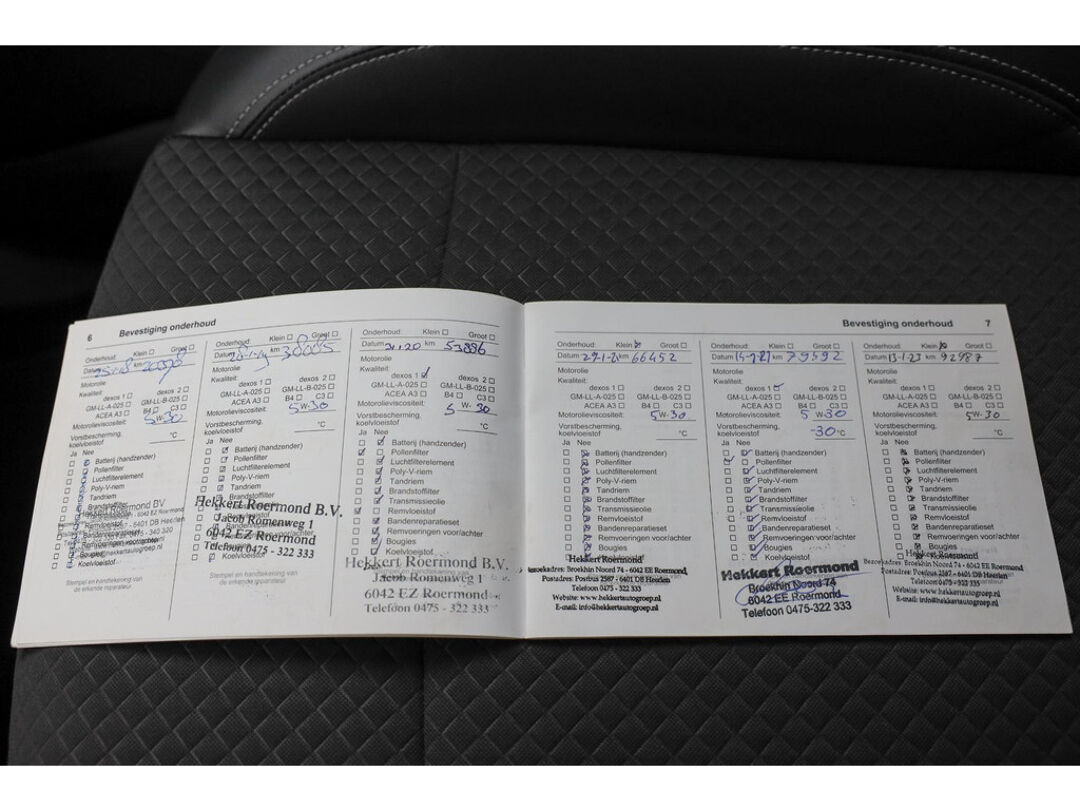 6 Bevestiging onderhoud
Onderhoud: Klein Groot
Datum km
Motorolie
Kwaliteit:
dexos 1 dexos 2
GM-LL-A-025 GM-LL-B-025
ACEA A3 B4 C3
Motorolieviscositeit: 5W-30
Vorstbescherming,
koelvloeistof °C
Ja Nee
Batterij (handzender)
Pollenfilter
Luchtfilterelement
Poly-V-riem
Tandriem
Brandstoffilter
Remvloeistof
Koelvloeistof
Stempel en handtekening van
de erkende reparateur
Onderhoud: Klein Groot
Datum km 30005
Motorolie
Kwaliteit:
dexos 1 dexos 2
GM-LL-A-025 GM-LL-B-025
ACEA A3 B4 C3
Motorolieviscositeit: 5W-30
Vorstbescherming,
koelvloeistof °C
Ja Nee
Batterij (handzender)
Pollenfilter
Luchtfilterelement
Poly-V-riem
Tandriem
Hekkert Roermond B.V.
Jacob Romenweg 1
6042 EZ Roermond
Telefoon 0475 - 322 333
Onderhoud: Klein Groot
Datum km 53896
Motorolie
Kwaliteit:
dexos 1 dexos 2
GM-LL-A-025 GM-LL-B-025
ACEA A3 B4 C3
Motorolieviscositeit: 5W-30
Vorstbescherming,
koelvloeistof °C
Ja Nee
Batterij (handzender)
Pollenfilter
Luchtfilterelement
Poly-V-riem
Tandriem
Brandstoffilter
Transmissieolie
Remvloeistof
Bandenreparatieset
Remvoeringen voor/achter
Bougies
Koelvloeistof
Hekkert Roermond B.V.
Jacob Romenweg 1
6042 EZ Roermond
Telefoon 0475 - 322 333
Bevestiging onderhoud 7
Onderhoud: Klein Groot
Datum km 66452
Motorolie
Kwaliteit:
dexos 1 dexos 2
GM-LL-A-025 GM-LL-B-025
ACEA A3 B4 C3
Motorolieviscositeit: 5W-30
Vorstbescherming,
koelvloeistof °C
Ja Nee
Batterij (handzender)
Pollenfilter
Luchtfilterelement
Poly-V-riem
Tandriem
Brandstoffilter
Transmissieolie
Remvloeistof
Bandenreparatieset
Remvoeringen voor/achter
Bougies
Hekkert Roermond
Bezoekadres: Broekhin Noord 74 - 6042 EE Roermond,
Postadres: Postbus 2587 - 6401 DB Heerlen
Telefoon 0475 - 322 333
Website: www.hekkertautogroep.nl
E-mail: info@hekkertautogroep.nl
Onderhoud: Klein Groot
Datum km 79592
Motorolie
Kwaliteit:
dexos 1 dexos 2
GM-LL-A-025 GM-LL-B-025
ACEA A3 B4 C3
Motorolieviscositeit: 5W-30
Vorstbescherming,
koelvloeistof -30 °C
Ja Nee
Batterij (handzender)
Pollenfilter
Luchtfilterelement
Poly-V-riem
Tandriem
Brandstoffilter
Transmissieolie
Remvloeistof
Bandenreparatieset
Remvoeringen voor/achter
Bougies
Koelvloeistof
Hekkert Roermond
Broekhin Noord 74
6042 EE Roermond
Telefoon 0475-322 333
Onderhoud: Klein Groot
Datum 13-1-23 km 92987
Motorolie
Kwaliteit:
dexos 1 dexos 2
GM-LL-A-025 GM-LL-B-025
ACEA A3 B4 C3
Motorolieviscositeit: 5W-30
Vorstbescherming,
koelvloeistof °C
Ja Nee
Batterij (handzender)
Pollenfilter
Luchtfilterelement
Poly-V-riem
Tandriem
Brandstoffilter
Transmissieolie
Remvloeistof
Bandenreparatieset
Remvoeringen voor/achter
Bougies
Hekkert Roermond
Bezoekadres: Broekhin Noord 74 - 6042 EE Roermond,
Postadres: Postbus 2587 - 6401 DB Heerlen
Telefoon 0475 - 322 333
Website: www.hekkertautogroep.nl
E-mail: info@hekkertautogroep.nl